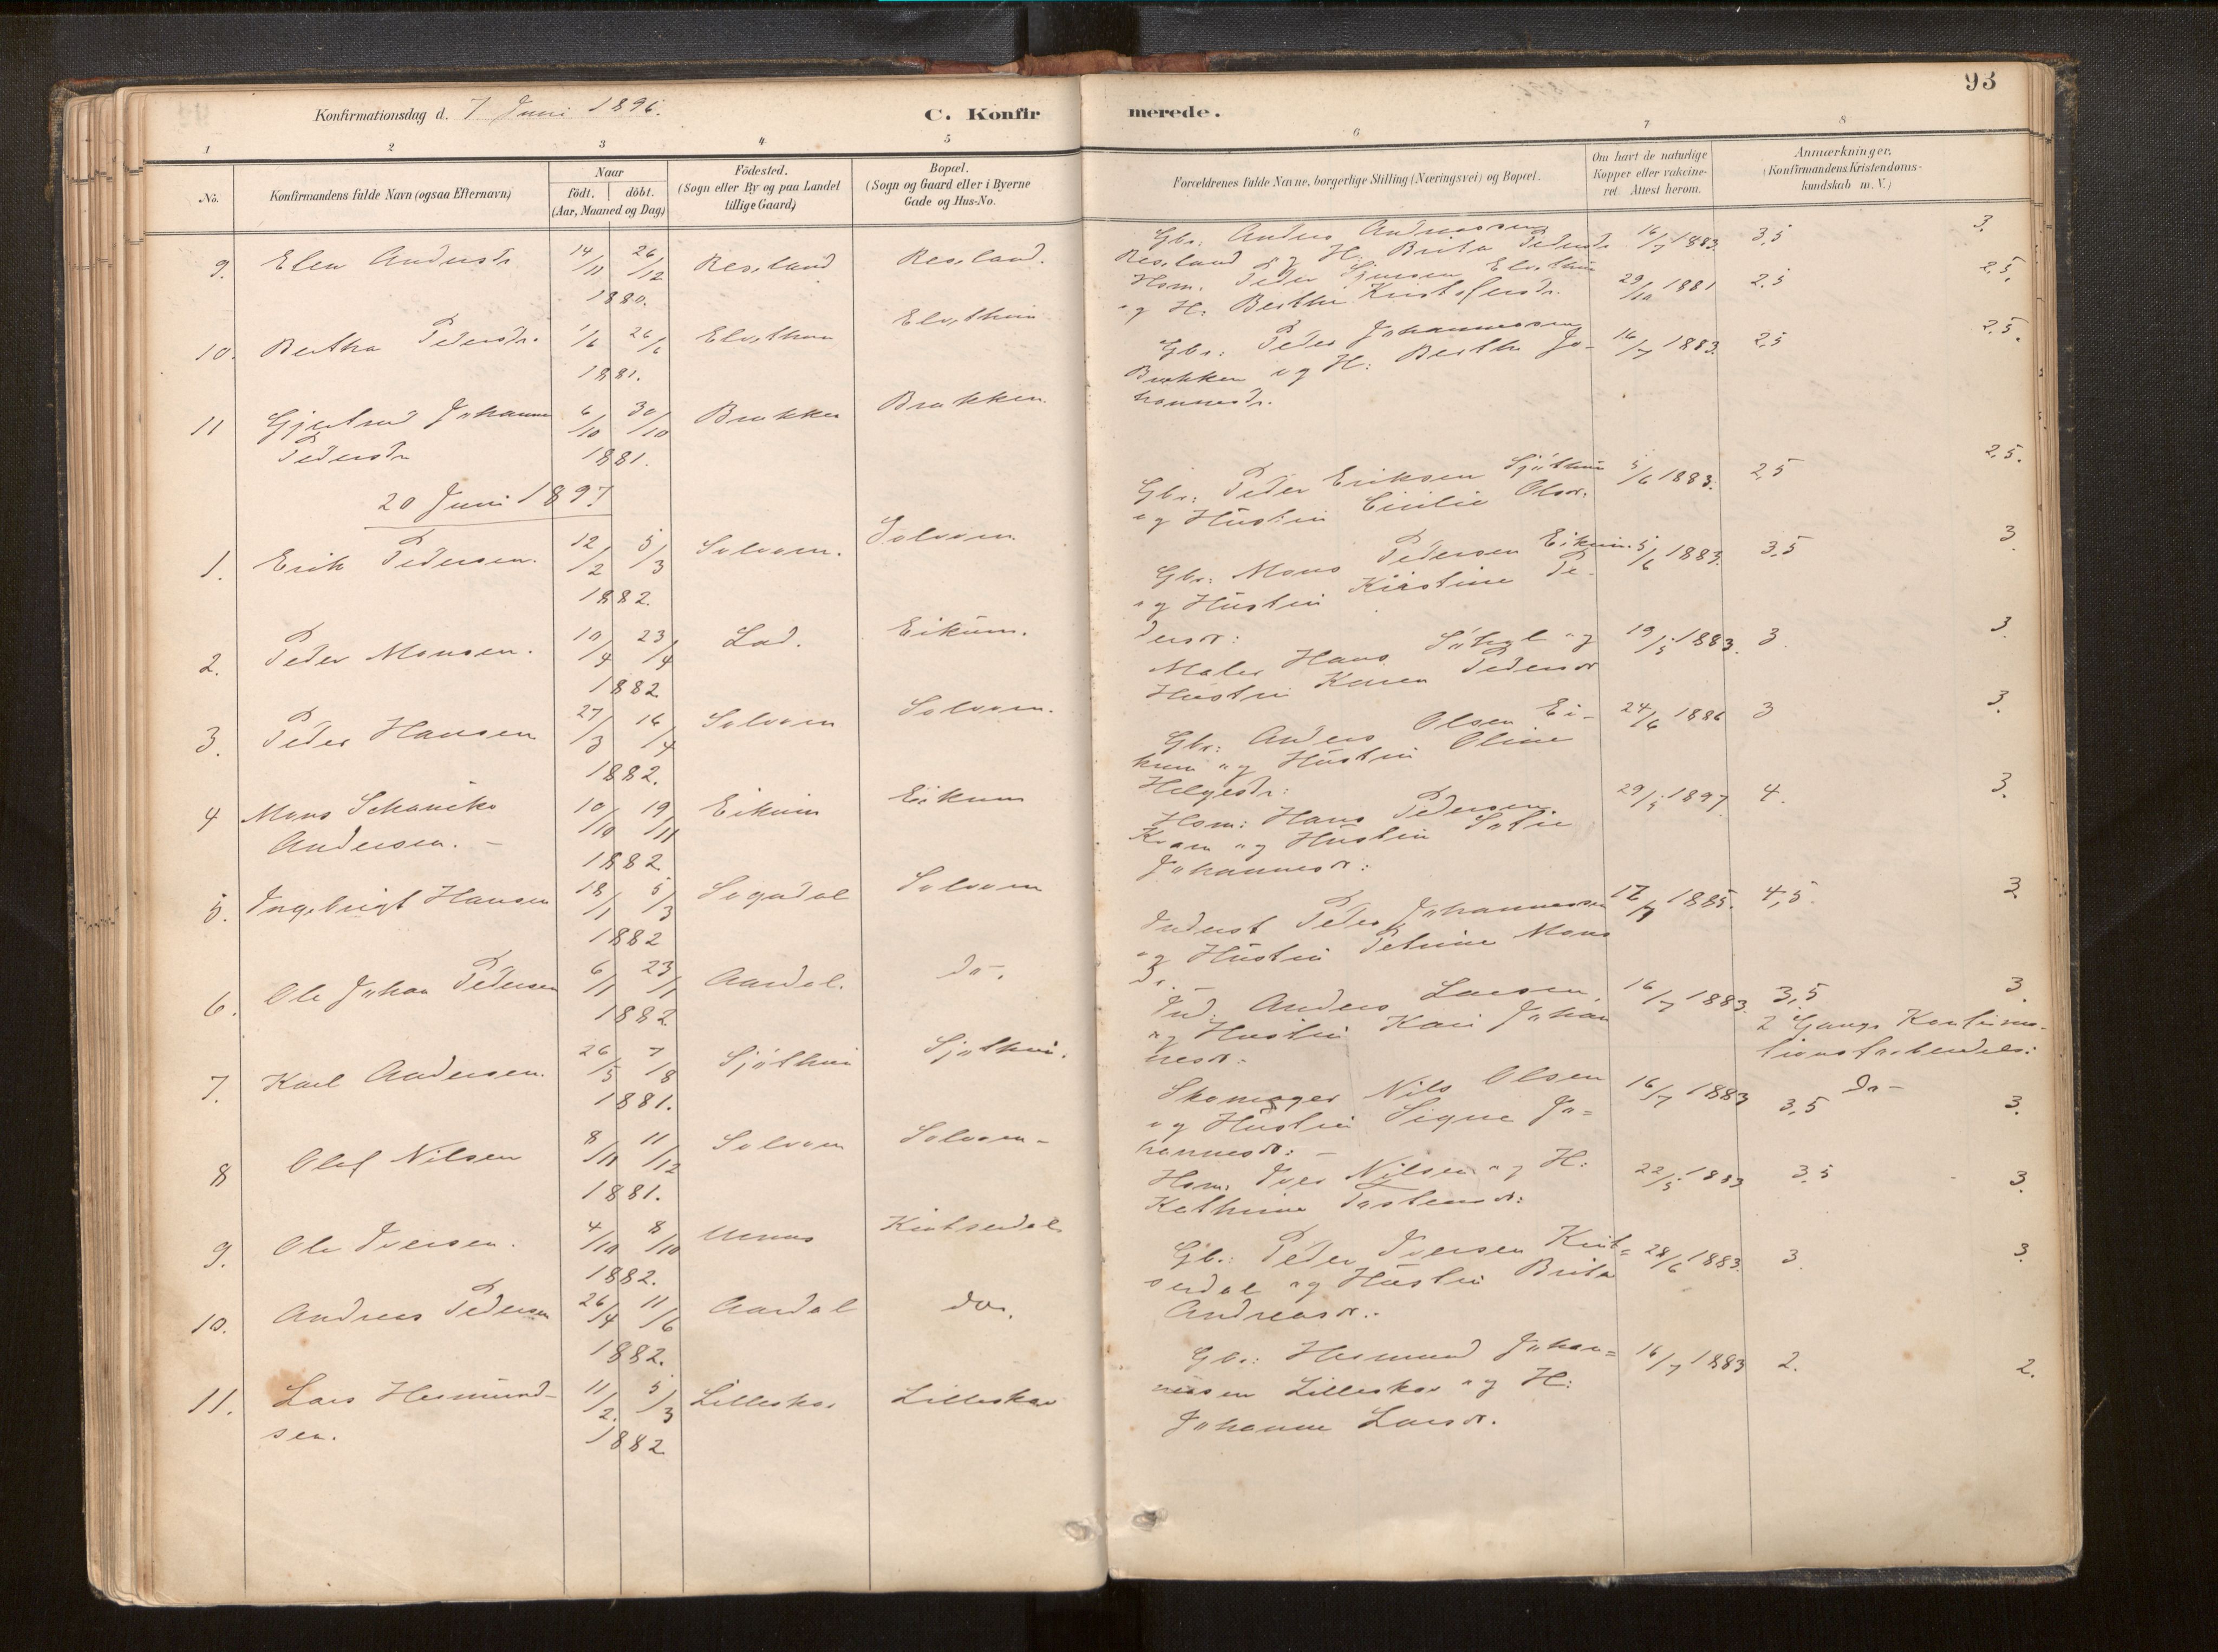 93
Konfirmationsdag d. 7 Juni 1896.
C. Konfirmerede.
1 2 3 4 5 6 7 8
No.
Konfirmandens fulde Navn (ogsaa Efternavn)
Naar
født. døbt.
(Aar, Maaned og Dag)
Födested.
(Sogn eller By og paa Landet
tillige Gaard)
Bopæl.
(Sogn og Gaard eller i Byerne
Gade og Hus-No.
Forældrenes fulde Navne, borgerlige Stilling (Næringsvei) og Bopæl.
Om havt de naturlige
Kopper eller vakcine-
ret. Attest herom.
Anmærkninger.
(Konfirmandens Kristendoms-
kundskab m. V.)
9. Elen Andersdr 14/11 26/12 Reseland Reseland.
1880.
Gbr. Anders Andreassen 16/7 1883. 3,5 3.
Reseland og H. Brita Pedersdr
10. Bertha Pedersdr. 1/6 26/6
1881.
Hsm. Peder 29/10 1881 2,5 2,5.
og H: Berthe Kristofersdr.
11 Gjertrud Johanne 6/10 30/10 Brekken Brekken.
Pedersdr 1881.
Gbr: Peder Johannessen 16/7 1883. 2,5 2,5.
Brekken og H: Berthe Jo-
hannesdr.
20 Juni 1897
1. Erik Pedersen. 12/2 5/3 Solvorn. Solvorn
1882.
Gbr: Peder Eriksen 5/6 1883. 2,5 2,5.
og Hustru Cicilie Olsdr.
2. Peder Monsen. 10/4 23/4 Lad. Eikum.
1882
Gbr: Mons Pedersen Eikum. 5/6 1883. 3,5 3
og Hustru Kirstine Pe-
dersdr:
3. Peder Hansen 27/3 16/4 Solvorn Solvorn.
1882.
Maler Hans og 19/5 1883. 3. 3.
Hustru Karen Pedersdr
4 Mons Schanche 10/10 19/11 Eikum Eikum
Andersen. - 1882
Gbr: Anders Olsen Ei- 24/6 1886 3 3.
kum og Hustru Oline
Helgesdr:
5. Ingebrigt Hansen 18/1 5/3 Sogndal Solvorn
1882
Hsm: Hans Pedersen. 29/5 1897. 4. 3.
Kram og Hustru Sofie
Johannesdr:
6. Ole Johan Pedersen 6/1 23/1 Aardal. do.
1882
Inderst Peder Johannessen 1885. 4,5. 3
og Hustru Petrine Mons
dr.
7. Karl Andersen. 26/5 7/8
1881.
Ind. Anders Larsen 16/7 1883. 3,5 3
og Hustru Kari Johan
nesdr:
2 Gange Konfirma-
tionsforberedels:
8 Olaf Nilsen 8/11 11/12 Solvorn Solvorn-
1881.
Skomager Nils Olsen 16/7 1883 3,5 do- 3.
og Hustru Signe Jo=
hannesdr: -
9. Ole Iversen. 4/10 8/10 Urnes
1882.
Hsm. Iver Nilsen og H: 22/5 1883 3,5 3.
Kathrine Tostensdr:
10. Andreas Pedersen 26/4 11/6 Aardal do.
1882.
Gb.: Peder Iversen 28/6 1883. 3. 3.
og Hustru Brita
Andreasdr.
11. Lars Hermund- 11/2. 5/3 Lilleskar Lilleskar
sen. 1882
Gbr: Hermund Johan= 16/7 1883 2. 2.
nesen Lilleskar og H:
Johanne Larsdr.